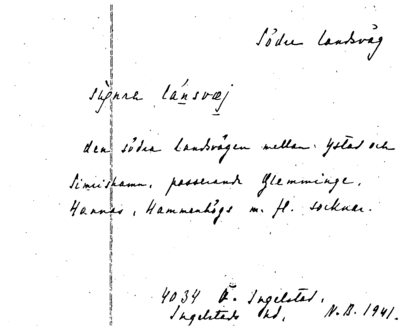 Södra landsväg
länsvæj
den södra landsvägen mellan Ystad och
Simrishamn, passerande Glemminge,
Hannas, Hammenhögs m. fl. socknar.
4034 Ö. Ingelstad,
Ingelstads hd, N.B. 1941.